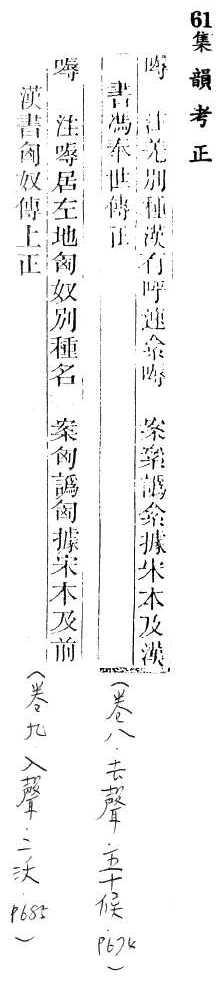 61集韻考正
嗕 注羌別種漢有呼速絫嗕 案絫譌絫據宋本及漢
書馮奉世傳正
(卷八.去聲.五十候 P674)
嗕 注嗕居左地匈奴別種名 案匈譌匃據宋本及前
漢書匈奴傳上正
(卷九.入聲.二沃.P685)